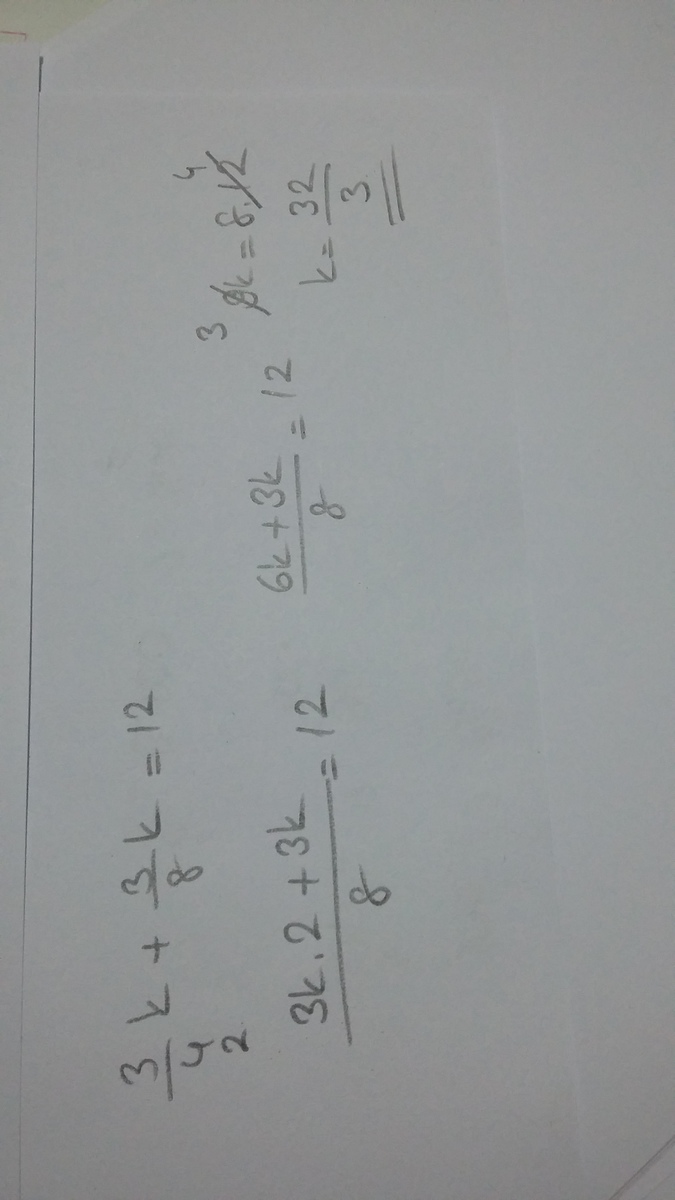 3/4 k + 3/8 k = 12
2
(3k . 2 + 3k)/8 = 12
(6k + 3k)/8 = 12
3 9k = 8.12 4
k = 32/3